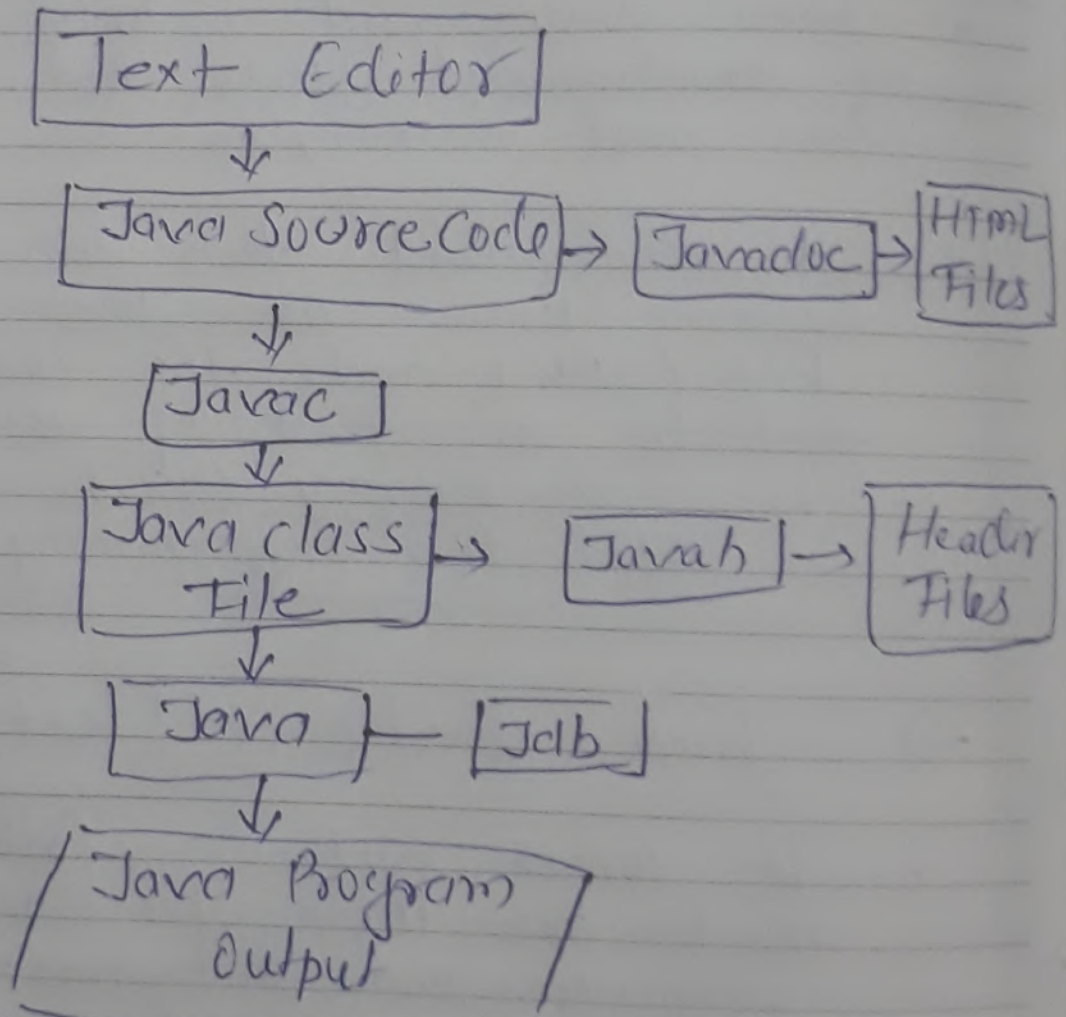 Text Editor
Java Source Code
Javadoc
HTML
Files
Javac
Java class
File
Javah
Header
Files
Java
Jdb
Java Program
Output